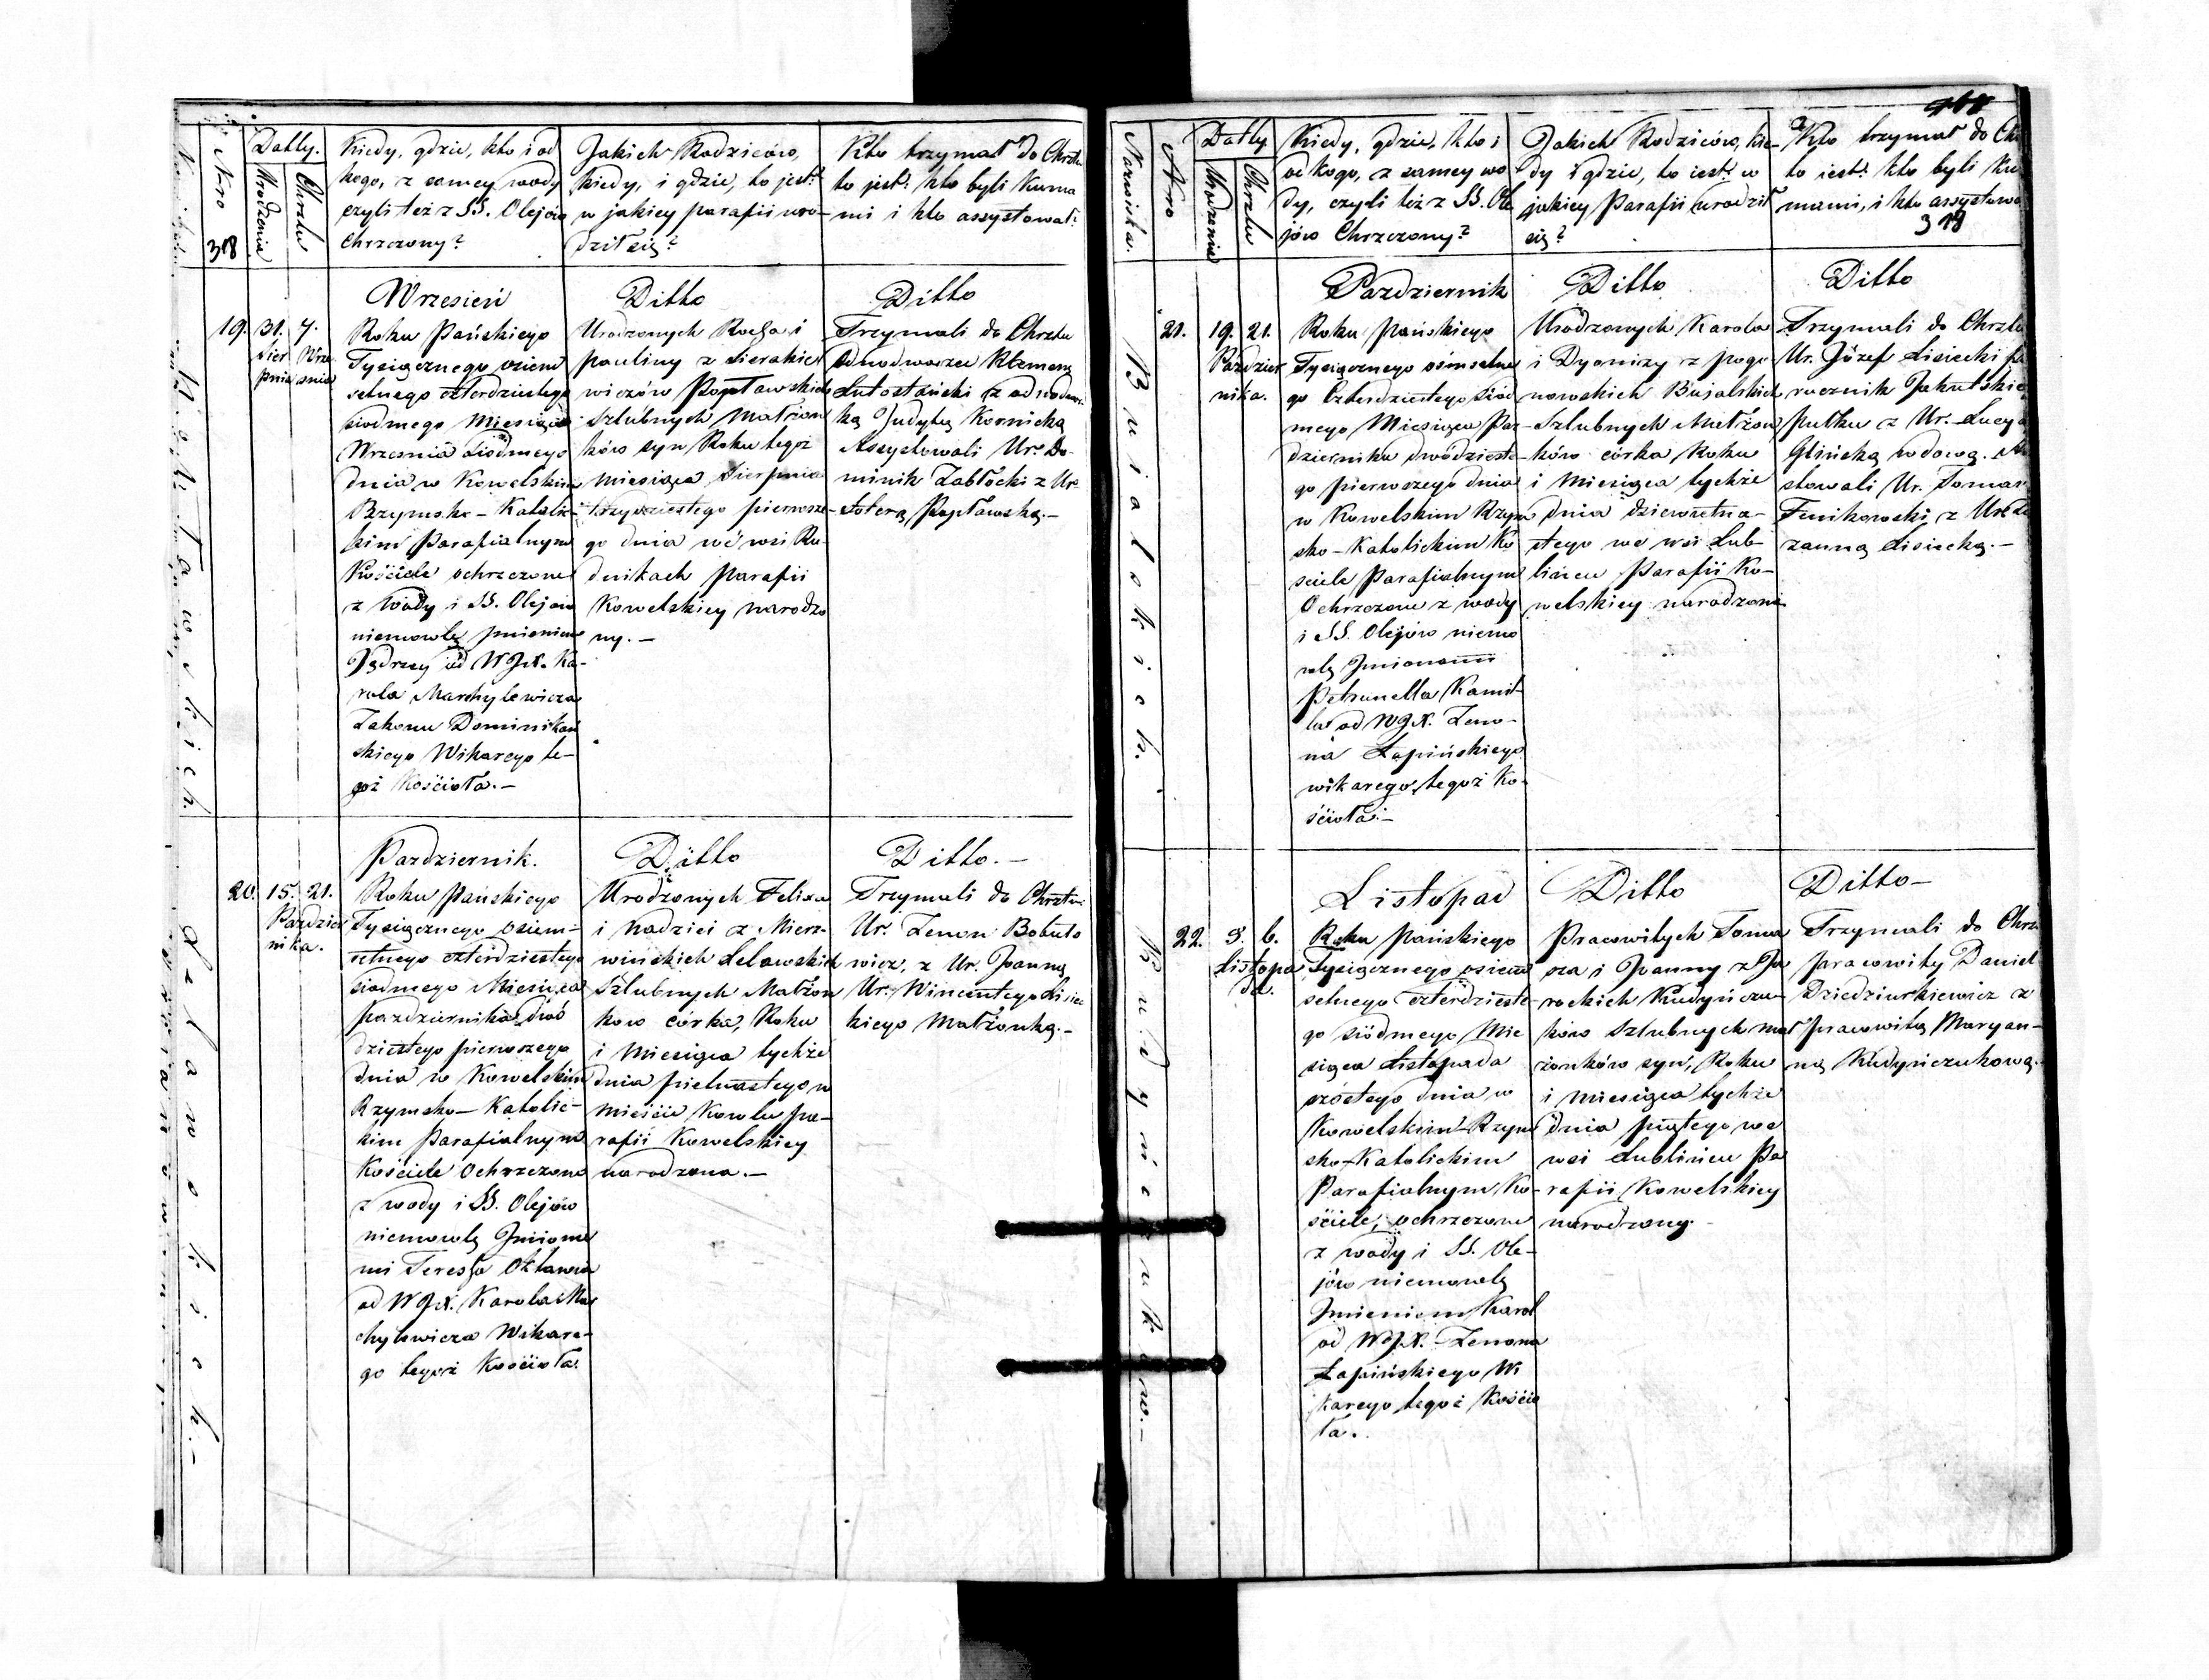 Nro
318
Datty.
Urodzenia
Chrztu
Kiedy, gdzie, kto i od
kogo, z samey wody
czyli też z SS. Olejów
Chrzczony?
Jakich Rodziców,
kiedy, i gdzie, to jest:
w jakiey parafii uro-
dził się?
Kto trzymał do Chrztu
to jest: kto byli Kuma
mi i kto assystował:
Wrzesień
Ditto
Ditto
19.
31.
Sier
pnia
7.
Wrze
śnia
Roku Pańskiego
Tysiącznego osiem
setnego czterdziestego
siodmego Miesiąca
Wrzesnia siódmego
dnia w Kowelskim
Rzymsko-Katolic-
kim Parafialnym
Kościele ochrzczono
z Wody i SS. Olejow
niemowlę imieniem
Jędrzey od WJX. Ka-
rola Marchylewicza
Zakonu Dominikań
skiego Wikarego te-
goż Kościoła.-
Urodzonych Rocha i
Pauliny z Sierakie
wiczów Popławskich
Szlubnych Małżon
ków syn Roku tegoż
miesiąca Sierpnia
trzydziestego pierwsze-
go dnia we wsi Ru-
dnikach Parafii
Kowelskiey narodzo
ny.-
Trzymali do Chrztu
Odnodworzec Klemens
Lutostański z odnodwor-
ką Judytą Kornicką
Assystowali Ur. Do-
minik Zabłocki z Ur.
Poplawską.-
Pazdziernik.
Ditto
Ditto.-
20.
15.
21.
Pazdzier
nika.
Roku Pańskiego
Tysiącznego osiem-
setnego czterdziestego
siodmego Miesiąca
Pazdziernika dwó
dziestego pierwszego
dnia w Kowelskim
Rzymsko-Katolic-
kim Parafialnym
Kościele Ochrzczono
z wody i SS. Olejów
niemowlę Imiona
mi Teressa Oktawia
od WJX. Karola Mar
chylewicza Wikare-
go tegoż Kościoła.
Urodzonych Felixa
i Nadziei z Mierz-
wińskich Lelawskich
Szlubnych Małżon
kow córka, Roku
i Miesiąca tychże
dnia piętnastego w
mieście Kowlu pa-
rafii Kowelskiey
narodzona.-
Trzymali do Chrztu
Ur. Zenon Bohuto
wicz, z Ur. Joanną
Ur. Wincentego Lisiec
kiego Małżonką.-
Lelawskich.-
418
Nazwiska.
Nro
Datty
Urodzenia
Chrztu
Kiedy, gdzie, kto i
od kogo, z samey wo
dy, czyli też z SS. Ole
jów Chrzczony?
Jakich Rodziców, kie-
dy i gdzie, to iest: w
jakiey Parafii urodził
się?
Kto trzymał do Chr
to iest: kto byli Ku
mami, i kto assystowa
319
Pazdziernik
Ditto
Ditto
Bujalskich.
21.
19.
21.
Pazdzier
nika.
Roku Pańskiego
Tysiącznego ośmsetne
go Czterdziestego Siód
mego Miesiąca Paz-
dziernika dwódzieste-
go pierwszego dnia
w Kowelskim Rzym
sko-Katolickim Ko
sciele Parafialnym
Ochrzczono z wody
i SS. Olejów niemo
wlę Imionami
Petrunella Kamil-
la od WJX. Zeno-
na Łapińskiego
wikarego tegoż Ko-
ścioła.-
Urodzonych Karola
i Dyonizy z Pogo
nowskich Bujalskich
Szlubnych Małżon
ków córka Roku
i Miesiąca tychże
dnia dziewietna-
stego we wsi Lub-
lińcu Parafii Ko-
welskiey narodzona
Trzymali do Chrztu
Ur. Józef Lisiecki po
rucznik Jakutskie
pułku z Ur. Lucyą
Glińską wdową. As
stowali Ur. Tomasz
Fenikowski z Ur. Zu
zanną Lisiecką.-
Listopad
Ditto
Ditto-
Kudyńczuków.-
22.
5.
6.
Listopa
da.
Roku Pańskiego
Tysiącznego osiem
setnego czterdzieste-
go siódmego Mie
siąca Listopada
szóstego dnia w
Kowelskim-Rzym
sko-Katolickim
Parafialnym Ko-
ściele, ochrzczono
z wody i SS. Ole-
jów niemowlę
Imieniem Karol
od WJX. Zenona
Łapińskiego Wi
karego tegoż Kościo
ła.
Pracowitych Toma
sza i Joanny z Ja
rockich Kudyńczu-
ków Szlubnych mał
żonków syn, Roku
i miesiąca tychże
dnia piątego we
wsi Lublińcu Pa
rafii Kowelskiey
narodzony.
Trzymali do Chrz
pracowity Daniel
Dziedziurkiewicz z
pracowitą Maryan-
ną Kudyńczukową.